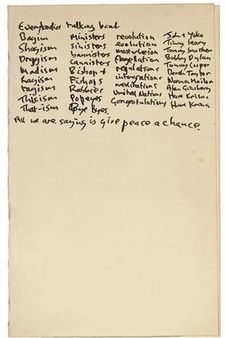 Everybodies talking bout
Bagism Ministers revolution John & Yoko
Shagism sinisters evolution Timmy Leary
Draggism bannisters masturbation Tommy Smothers
Madism Cannisters flagellation Bobby Dylan
Ragism Bishops regulations Tommy Cooper
Tagism Fishops integrations Derek Taylor
Thisism Rabbies meditations Norman Mailer
That-ism Popeyes United Nations Alan Ginsberg
bye byes Congratulations Hare Krishna
Hare
All we are saying is give peace a chance.